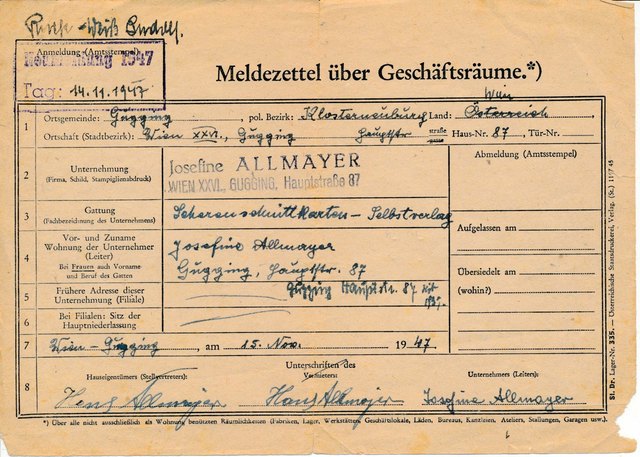 Anmeldung (Amtsstempel)
Neumeldung 1947
Tag: 14.11.1947
Meldezettel über Geschäftsräume.*)
Wien
1 Ortsgemeinde: Gugging, pol. Bezirk: Klosterneuburg Land: Österreich,
Ortschaft (Stadtbezirk): Wien XXVI., Gugging Hauptstr straße Haus-Nr. 87, Tür-Nr.
2 Unternehmung
(Firma, Schild, Stampiglienabdruck)
Josefine ALLMAYER
WIEN XXVI., GUGGING, Hauptstraße 87
Abmeldung (Amtsstempel)
3 Gattung
(Fachbezeichnung des Unternehmens)
Scherenschnittkarten - Selbstverlag
Aufgelassen am
4 Vor- und Zuname
Wohnung der Unternehmer
(Leiter)
Bei Frauen auch Vorname
und Beruf des Gatten
Josefine Allmayer
Gugging, Hauptstr. 87
Übersiedelt am
(wohin?)
5 Frühere Adresse dieser
Unternehmung (Filiale)
Gugging Hauptstr. 87 seit
1939.
6 Bei Filialen: Sitz der
Hauptniederlassung
7 Wien - Gugging, am 15. Nov. 1947
Unterschriften des
8 Hauseigentümers (Stellvertreters): Vermieters: Unternehmers (Leiters):
Hans Allmayer Hans Allmayer Josefine Allmayer
*) Über alle nicht ausschließlich als Wohnung benützten Räumlichkeiten (Fabriken, Lager, Werkstätten, Geschäftslokale, Läden, Bureaus, Kanzleien, Ateliers, Stallungen, Garagen usw.).
St. Dr. Lager-Nr. 335. — Österreichische Staatsdruckerei, Verlag. (St.) 1197 45